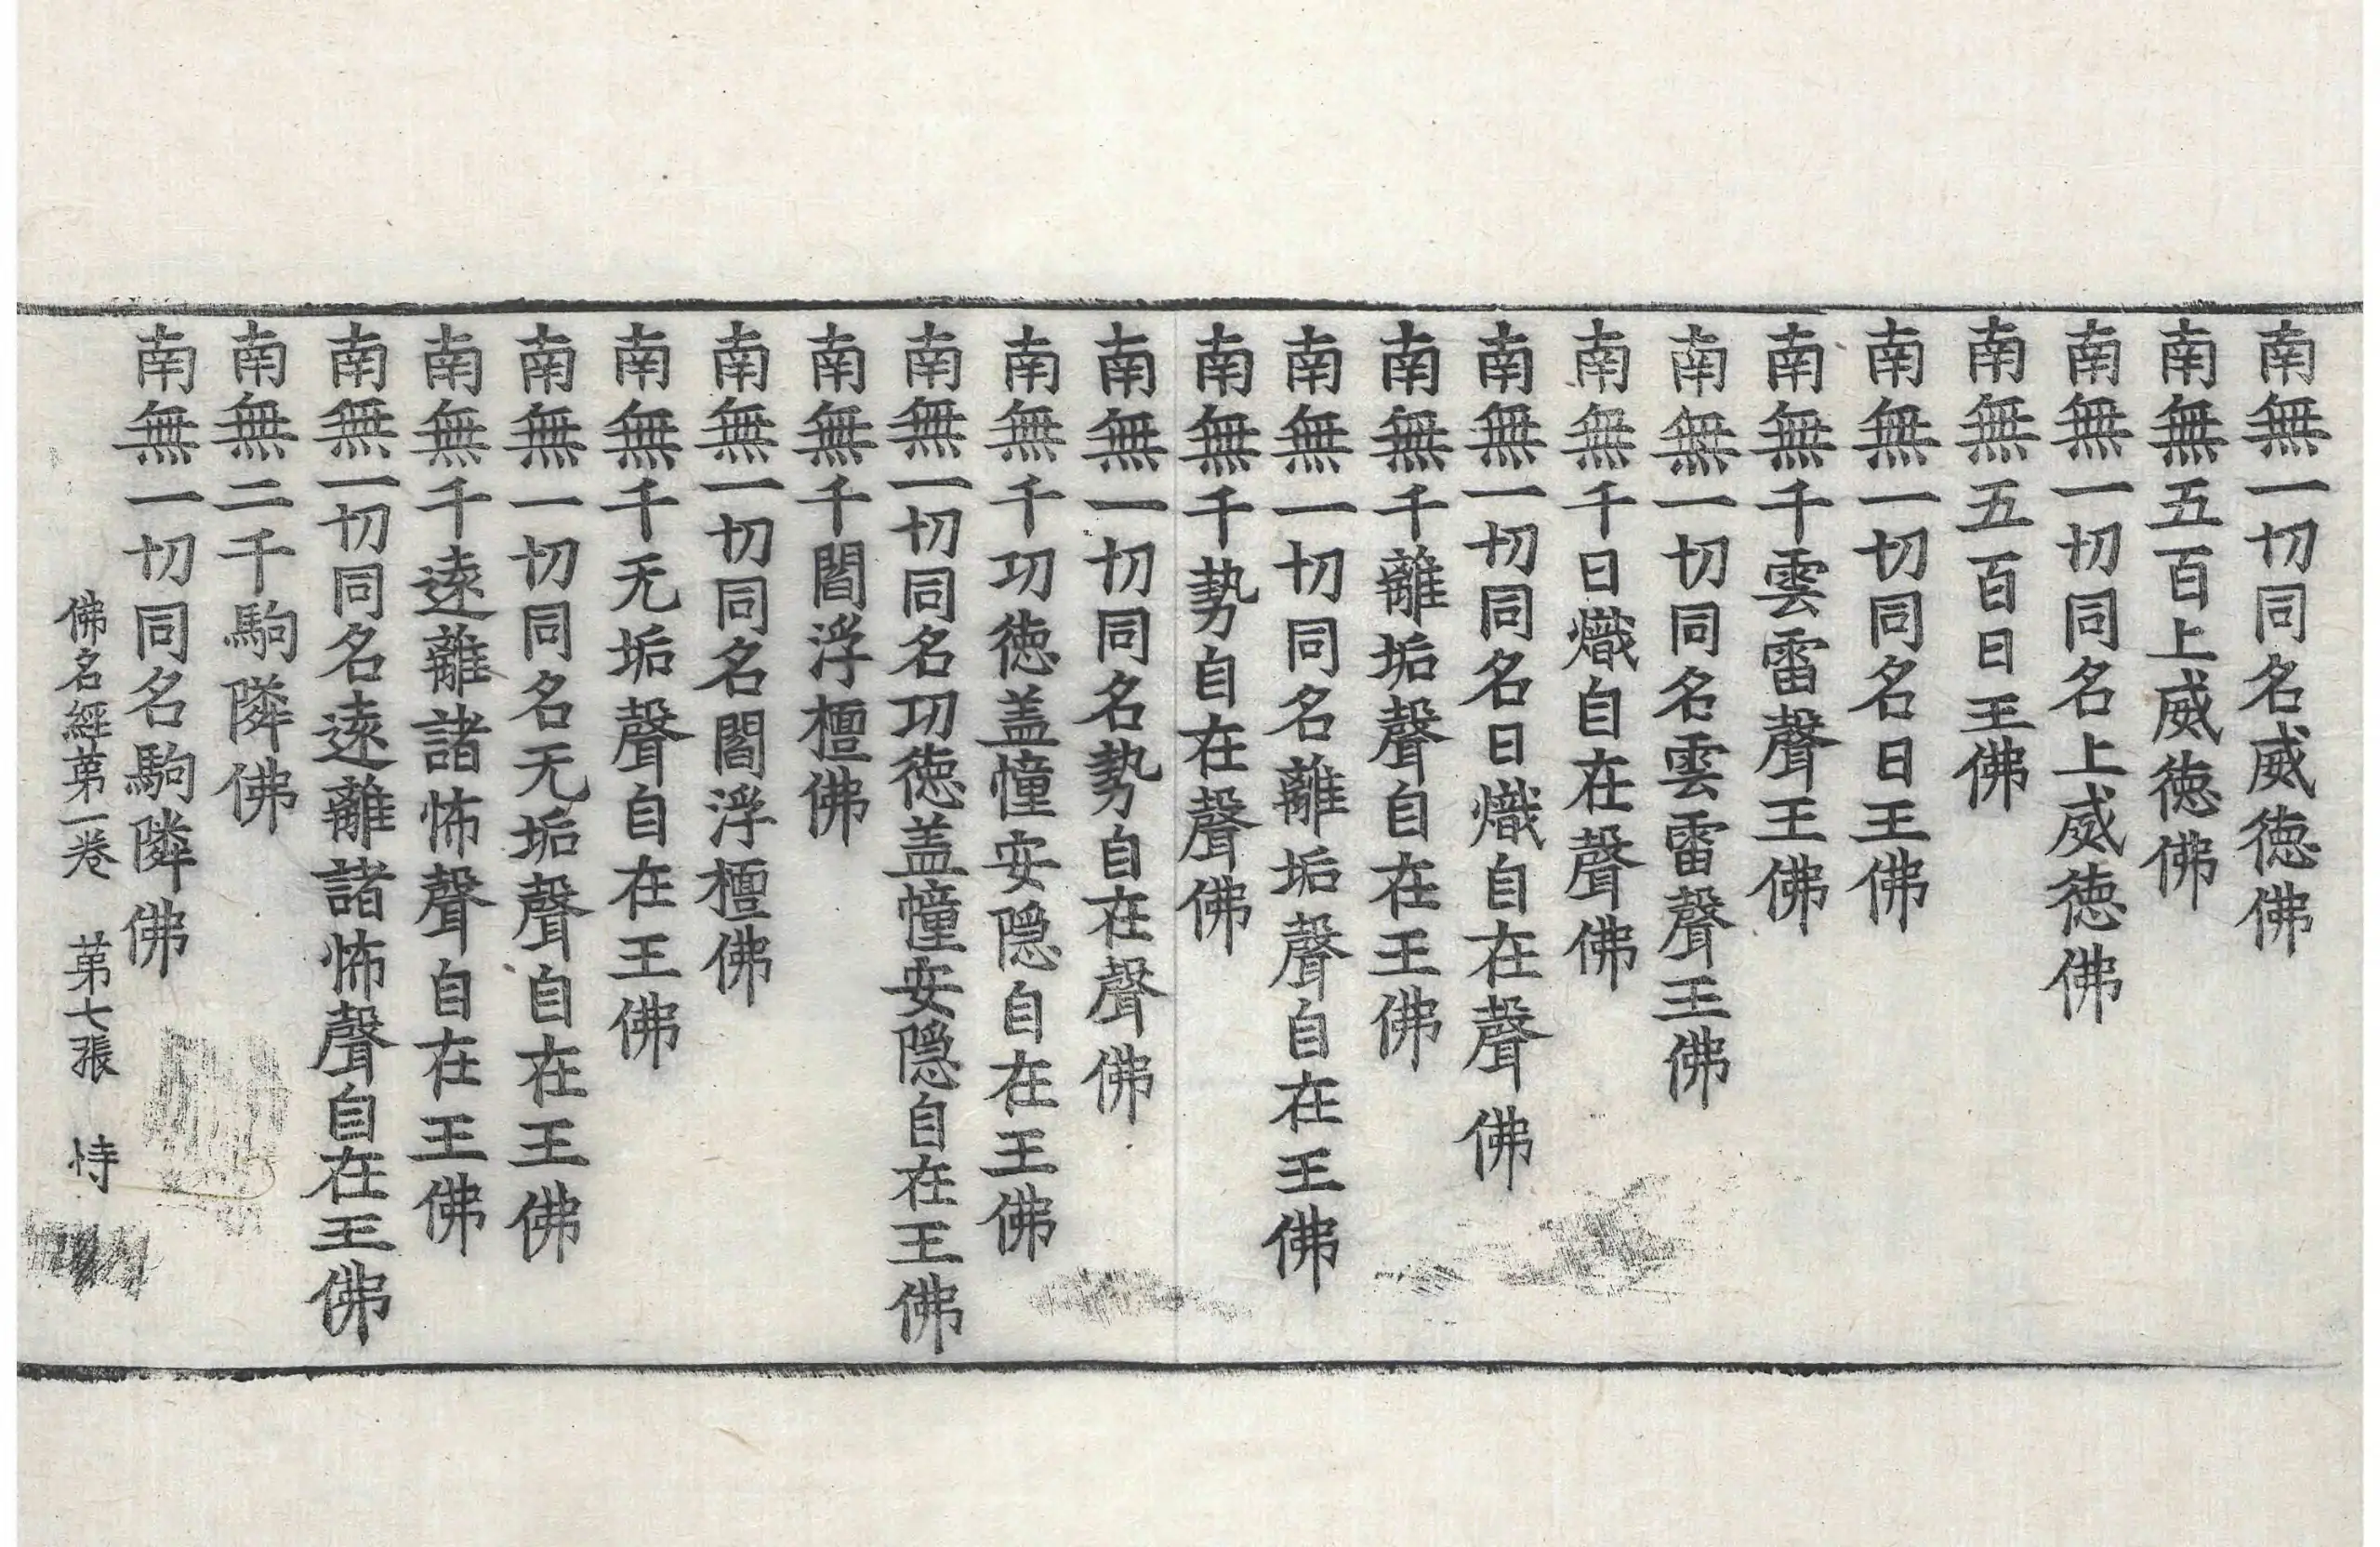 南無一切同名威德佛
南無五百上威德佛
南無一切同名上威德佛
南無五百日王佛
南無一切同名日王佛
南無千雲雷聲王佛
南無一切同名雲雷聲王佛
南無千日熾自在聲佛
南無一切同名日熾自在聲佛
南無千離垢聲自在王佛
南無一切同名離垢聲自在王佛
南無千勢自在聲佛
南無一切同名勢自在聲佛
南無千功德盖幢安隱自在王佛
南無一切同名功德盖幢安隱自在王佛
南無千閻浮檀佛
南無一切同名閻浮檀佛
南無千无垢聲自在王佛
南無一切同名无垢聲自在王佛
南無千遠離諸怖聲自在王佛
南無一切同名遠離諸怖聲自在王佛
南無二千駒隣佛
南無一切同名駒隣佛
佛名經苐一卷 苐七張 恃